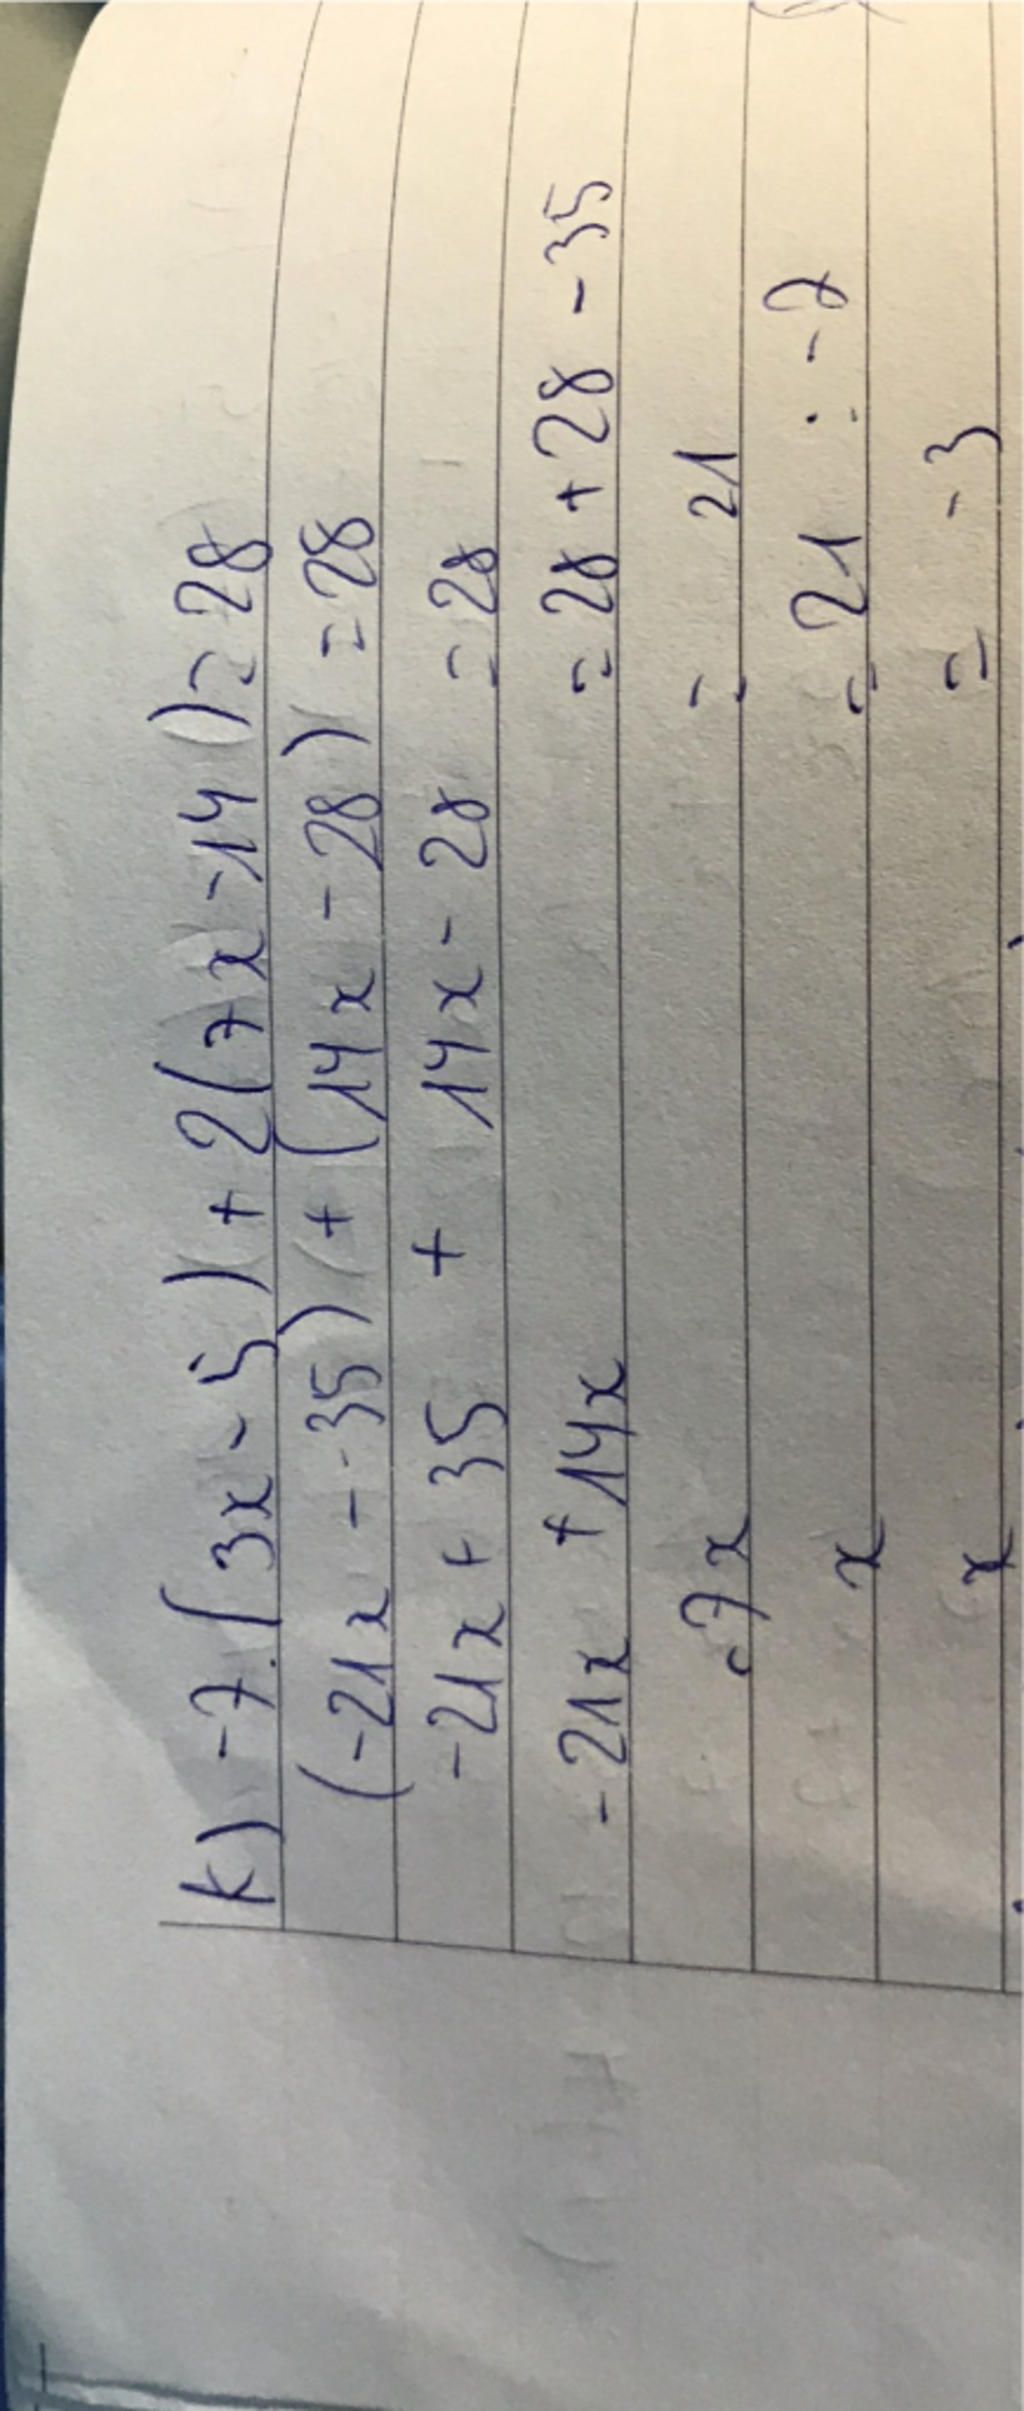 k) -7.(3x - 5) + 2(7x - 14) = 28
(-21x - -35) + (14x - 28) = 28
-21x + 35 + 14x - 28 = 28
-21x + 14x = 28 + 28 - 35
-7x = 21
x = 21 : -7
x = -3